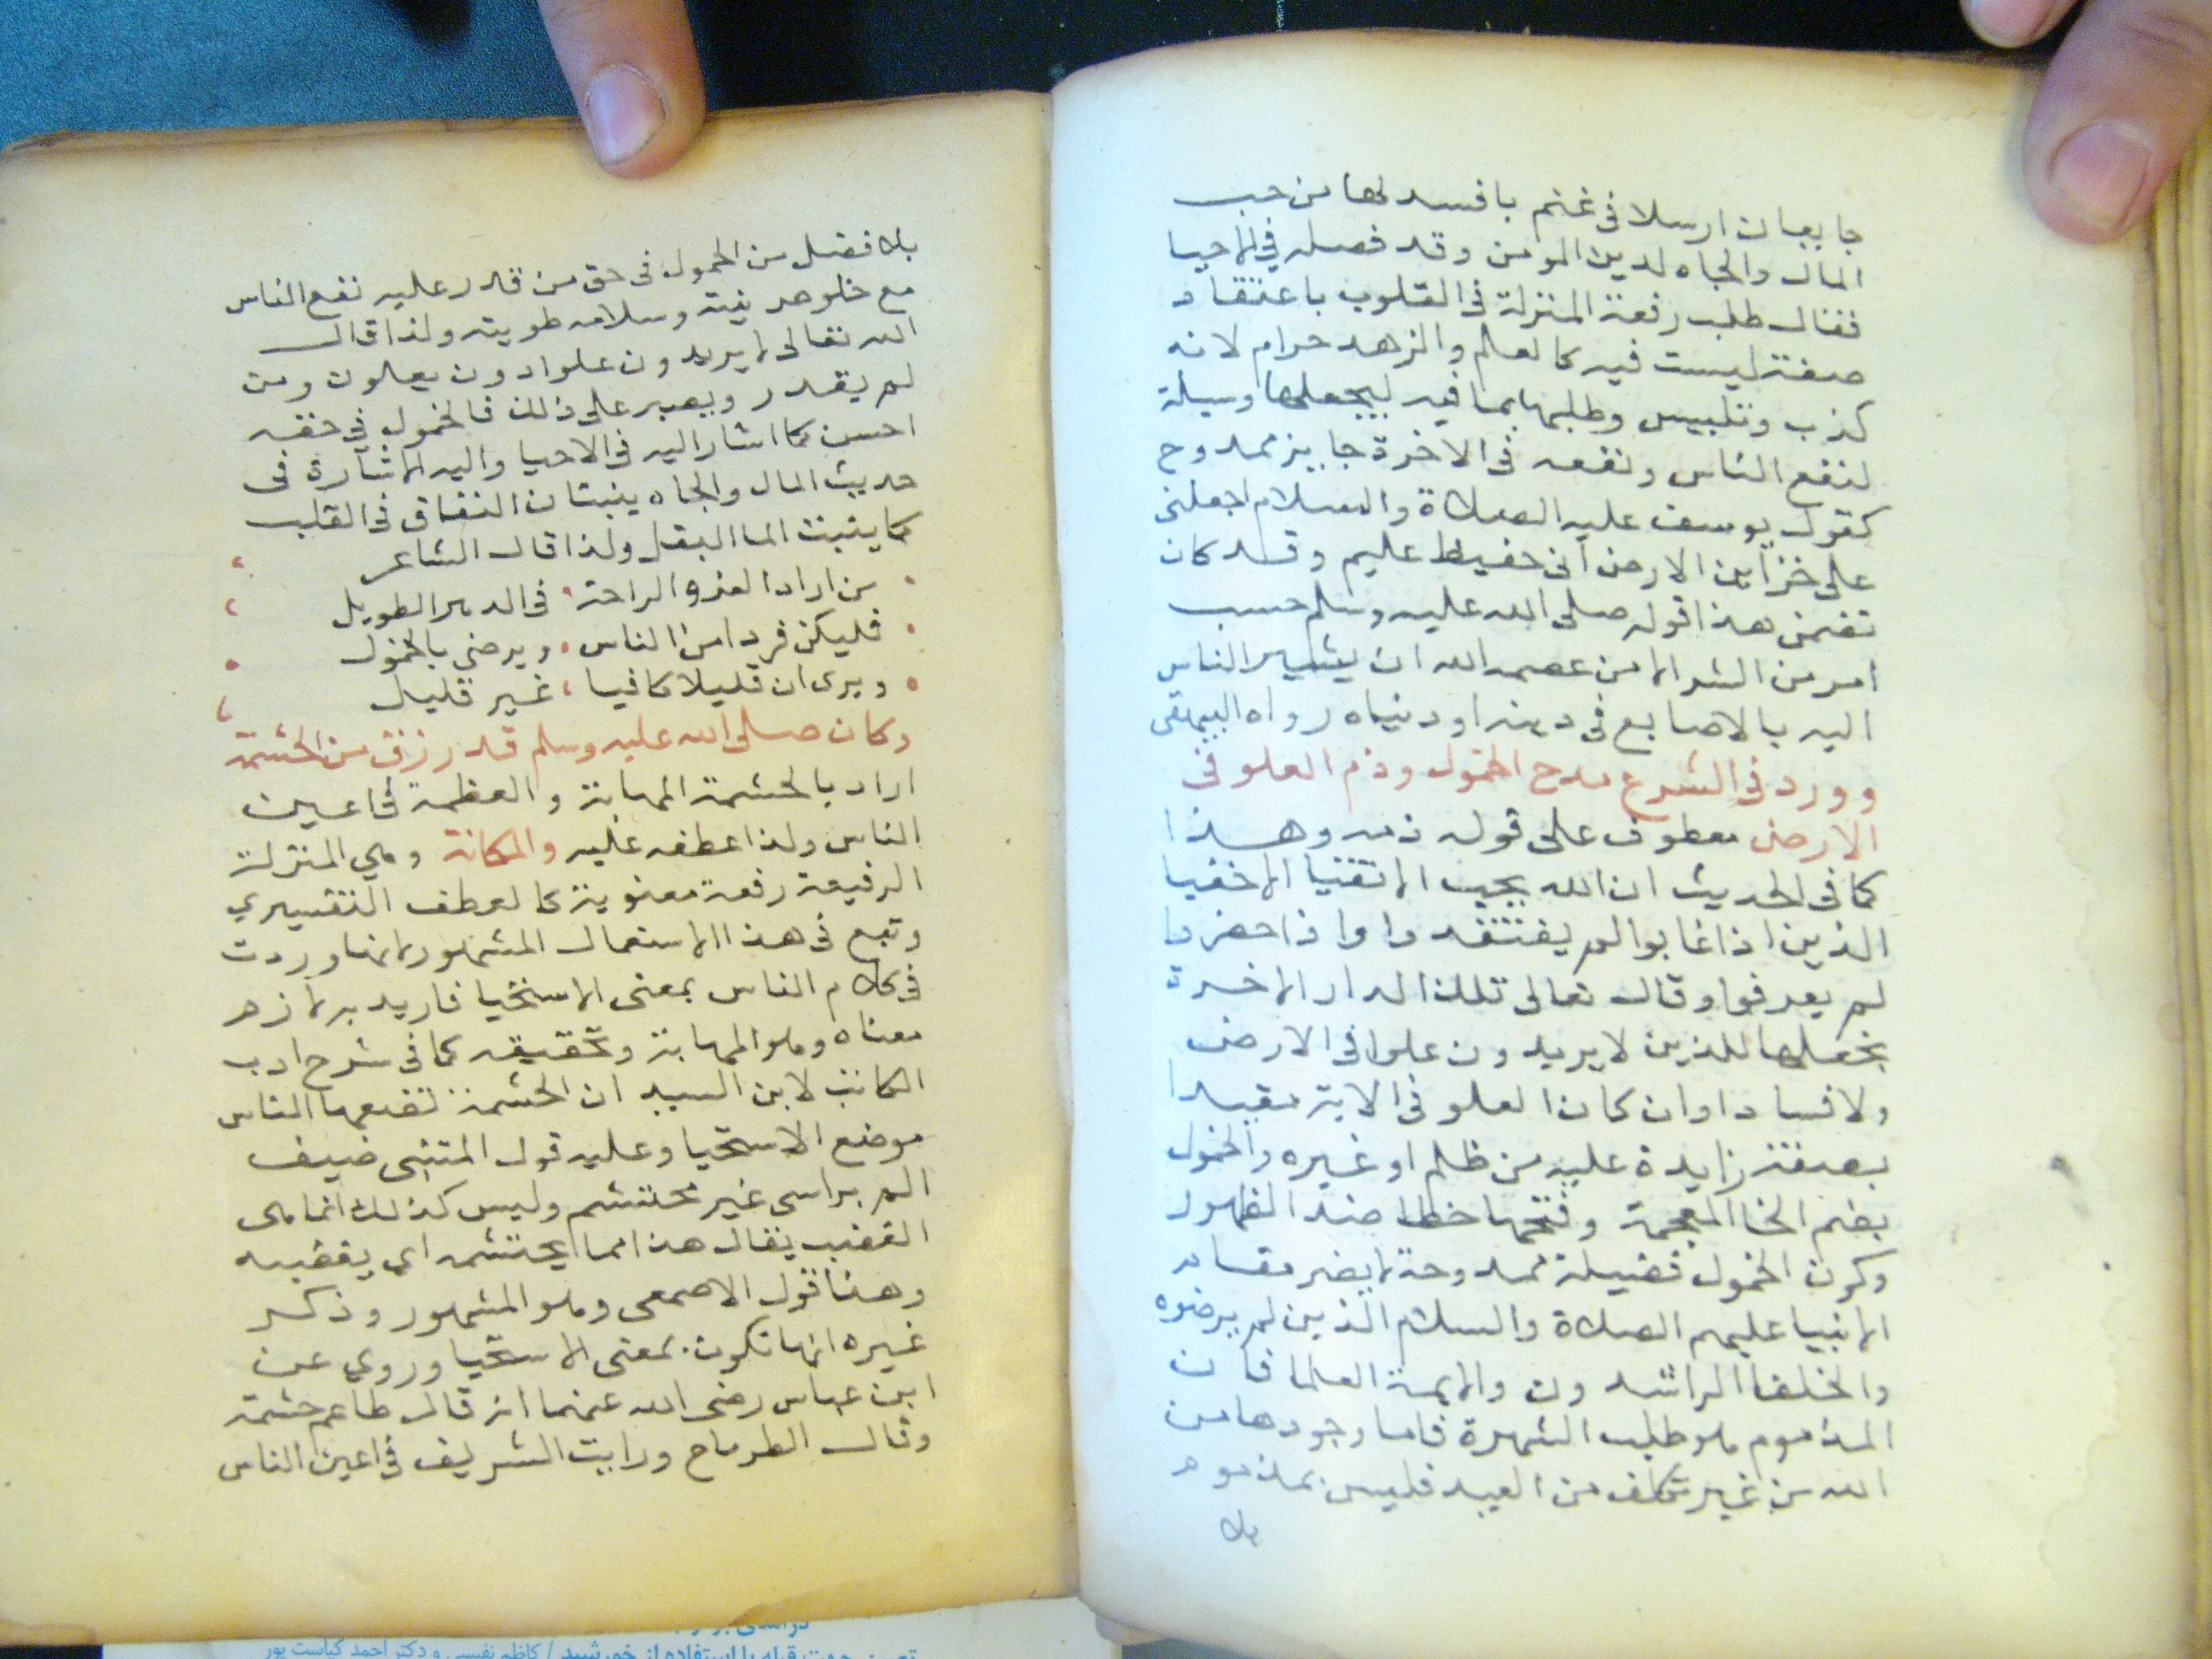 جايعان ارسلا فى غنم بافسد لها من حب
المال والجاه لدين المومن وقد فصله في الاحيا
فقال طلب رفعة المنزلة فى القلوب باعتقاد
صفة ليست فيه كالعلم والزهد حرام لانه
كذب وتلبيس وطلبها بما فيه ليجعلها وسيلة
لنفع الناس ونفعه فى الاخرة جايز ممدوح
كقول يوسف عليه الصلاة والسلام اجعلنى
على خزاين الارض انى حفيظ عليم وقد كان
تضمن هذا قوله صلى الله عليه وسلم حسب
امر من الشر الا من عصمه الله ان يشير الناس
اليه بالاصابع فى دينه او دنياه رواه البيهقى
وورد فى الشرع مدح الخمول وذم العلو فى
الارض معطوف على قوله ذمه وهذا
كما فى الحديث ان الله يحب الاتقيا الاخفيا
الذين اذا غابوا لم يفتقدوا واذا حضروا
لم يعرفوا وقال تعالى تلك الدار الاخرة
نجعلها للذين لا يريدون علوا فى الارض
ولا فسادا وان كان العلو فى الاية مقيدا
بصفة زايدة عليه من ظلم او غيره والخمول
بضم الخا المعجمة وفتحها خطا ضد الظهور
وكون الخمول فضيلة ممدوحة لا يضر مقام
الانبيا عليهم الصلاة والسلام الذين لم يرضوه
والخلفا الراشدون والايمة العلما فان
المذموم هو طلب الشهرة فاما وجودها من
الله من غير تكلف من العبد فليس بمذموم
بل
بل افضل من الخمول فى حق من قدر عليه نفع الناس
مع خلوص نيته وسلامه طويته ولذا قال
الله تعالى لا يريدون علوا دون يعلون ومن
لم يقدر ويصبر على ذلك فالخمول في حقه
احسن كما اشار اليه فى الاحيا واليه الاشارة فى
حديث المال والجاه ينبتان النفاق فى القلب
كما ينبت الما البقل ولذا قال الشاعر
من اراد العز والراحة فى الدهر الطويل
فليكن فردا من الناس ويرضى بالخمول
ويرى ان قليلا كافيا غير قليل
وكان صلى الله عليه وسلم قد رزق من الحشمة
اراد بالحشمة المهابة والعظمة فى اعين
الناس ولذا عطف عليه والمكانة وهي المنزلة
الرفيعة رفعة معنوية كالعطف التفسيري
وتبع فى هذا الاستعمال المشهور لانها وردت
فى كلام الناس بمعنى الاستحيا فاريد به لازم
معناه وهو المهابة وتحقيقه كما فى شرح ادب
الكاتب لابن السيد ان الحشمة تضعها الناس
موضع الاستحيا وعليه قول المتنبى ضيف
الم براسى غير محتشم وليس كذلك انما هى
الغضب يقال هذا مما يحتشمه اي يغضبه
وهذا قول الاصمعى وهو المشهور وذكر
غيره انها تكون بمعنى الاستحيا وروي عن
ابن عباس رضى الله عنهما انه قال طاعم حشمة
وقال الطرماح ورايت الشريف فى اعين الناس